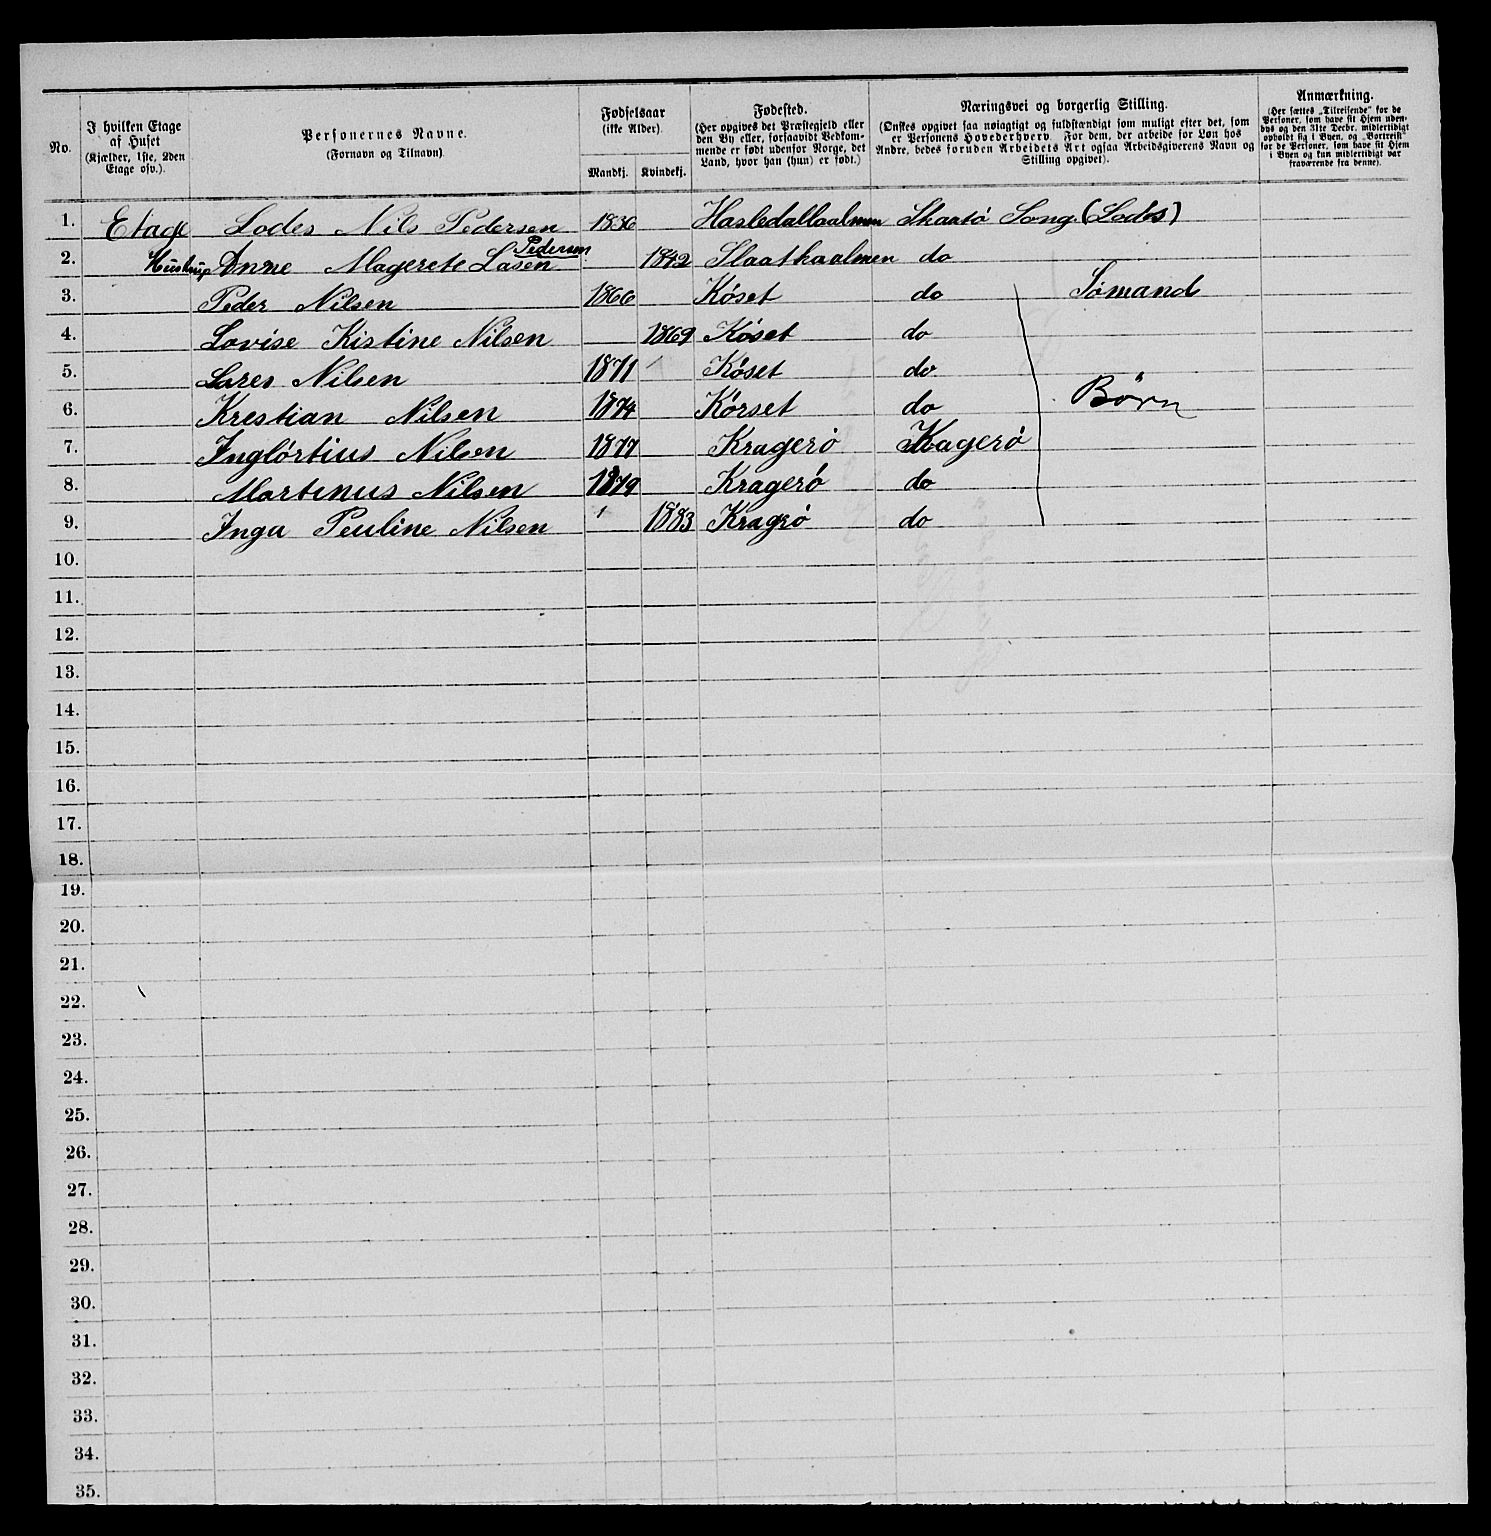 No.
I hvilken Etage
af Huset
(Kjælder, 1ste, 2den
Etage osv.).
Personernes Navne.
(Fornavn og Tilnavn).
Fødselsaar
(ikke Alder).
Mandkj. Kvindekj.
Fødested.
(Her opgives det Præstegjeld eller
den By eller, forsaavidt Vedkom-
mende er født udenfor Norge, det
Land, hvor han (hun) er født.)
Næringsvei og borgerlig Stilling.
(Ønskes opgivet saa nøiagtigt og fuldstændigt som muligt efter det, som
er Personens Hovederhverv. For dem, der arbeide for Løn hos
Andre, bedes foruden Arbeidets Art ogsaa Arbeidsgiverens Navn og
Stilling opgivet).
Anmærkning.
(Her sættes „Tilreisende“ for de
Personer, som have sit Hjem uden-
bys og den 31te Decbr. midlertidigt
opholdt sig i Byen, og „Bortreist“
for de Personer, som have sit Hjem
i Byen og kun midlertidigt var
fraværende fra denne).
1. Etage Lodes Nils Pedersen 1836 Skaatø Song (Lodes)
Pedersen
2. Hustrup Anne Magerete Lasen 1842 Slaatkaalmen do
3. Peder Nilsen 1866 Köset do Sömand
4. Lovise Kistine Nilsen 1869 Köset do
5. Lares Nilsen 1871 Köset do
6. Krestian Nilsen 1874 Körset do Børn
7. Inglörtius Nilsen 1877 Kragerö Kagerö
8. Martinus Nilsen 1879 Kragerö do
9. Inga Peuline Nilsen 1883 Kragrö do
10.
11.
12.
13.
14.
15.
16.
17.
18.
19.
20.
21.
22.
23.
24.
25.
26.
27.
28.
29.
30.
31.
32.
33.
34.
35.